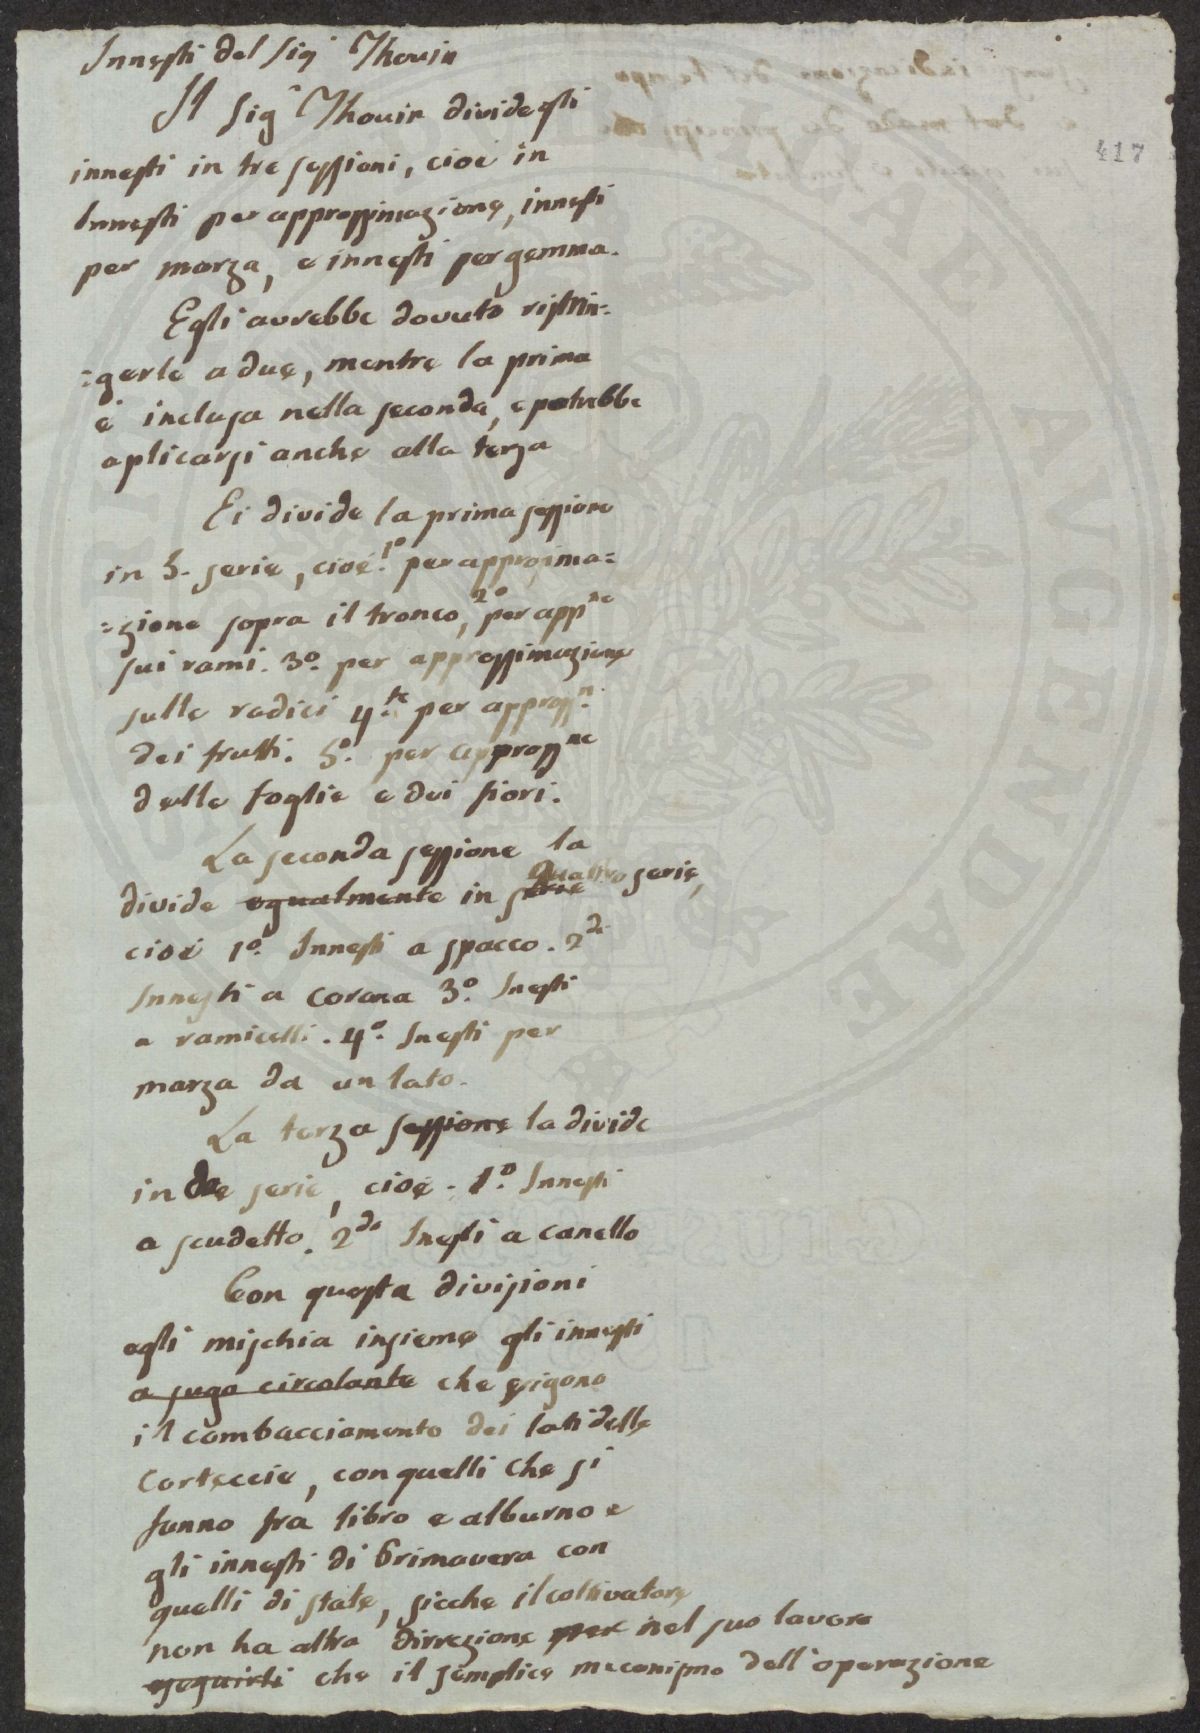 Innesti del Sig.r Thouin
417
Il Sig.r Thouin divide gli
innesti in tre sessioni, cioè in
Innesti per approssimazione, innesti
per marza, e innesti per gemma.
Egli avrebbe dovuto ristrin=
=gerle a due, mentre la prima
è inclusa nella seconda, e potrebbe
aplicarsi anche alla terza
Ei divide la prima sessione
in 5. serie, cioè 1º per approsima=
=zione sopra il tronco, 2º per app.ne
sui rami. 3º. per approssimazione
sulle radici 4.te per appross.n
dei frutti. 5º. per appross.ne
delle foglie e dei fiori.
La seconda sessione la
divide egualmente in serie quattro serie,
cioè 1º. Innesti a spacco. 2.do
Innesti a corona 3º. Inesti
a ramicelli. 4º. Inesti per
marza da un lato.
La terza sessione la divide
in due serie, cioè. 1º. Innesti
a scudetto. 2.do Inesti a canello
Con questa divisioni
egli mischia insieme gli innesti
a sugo circolante che esigono
il combacciamento dei lati delle
Corteccie, con quelli che si
fanno fra libro e alburno e
gli innesti di Primavera con
quelli di state, sicche il coltivatore
non ha altra dirrezione per nel suo lavoro
che il semplice mecanismo dell'operazione